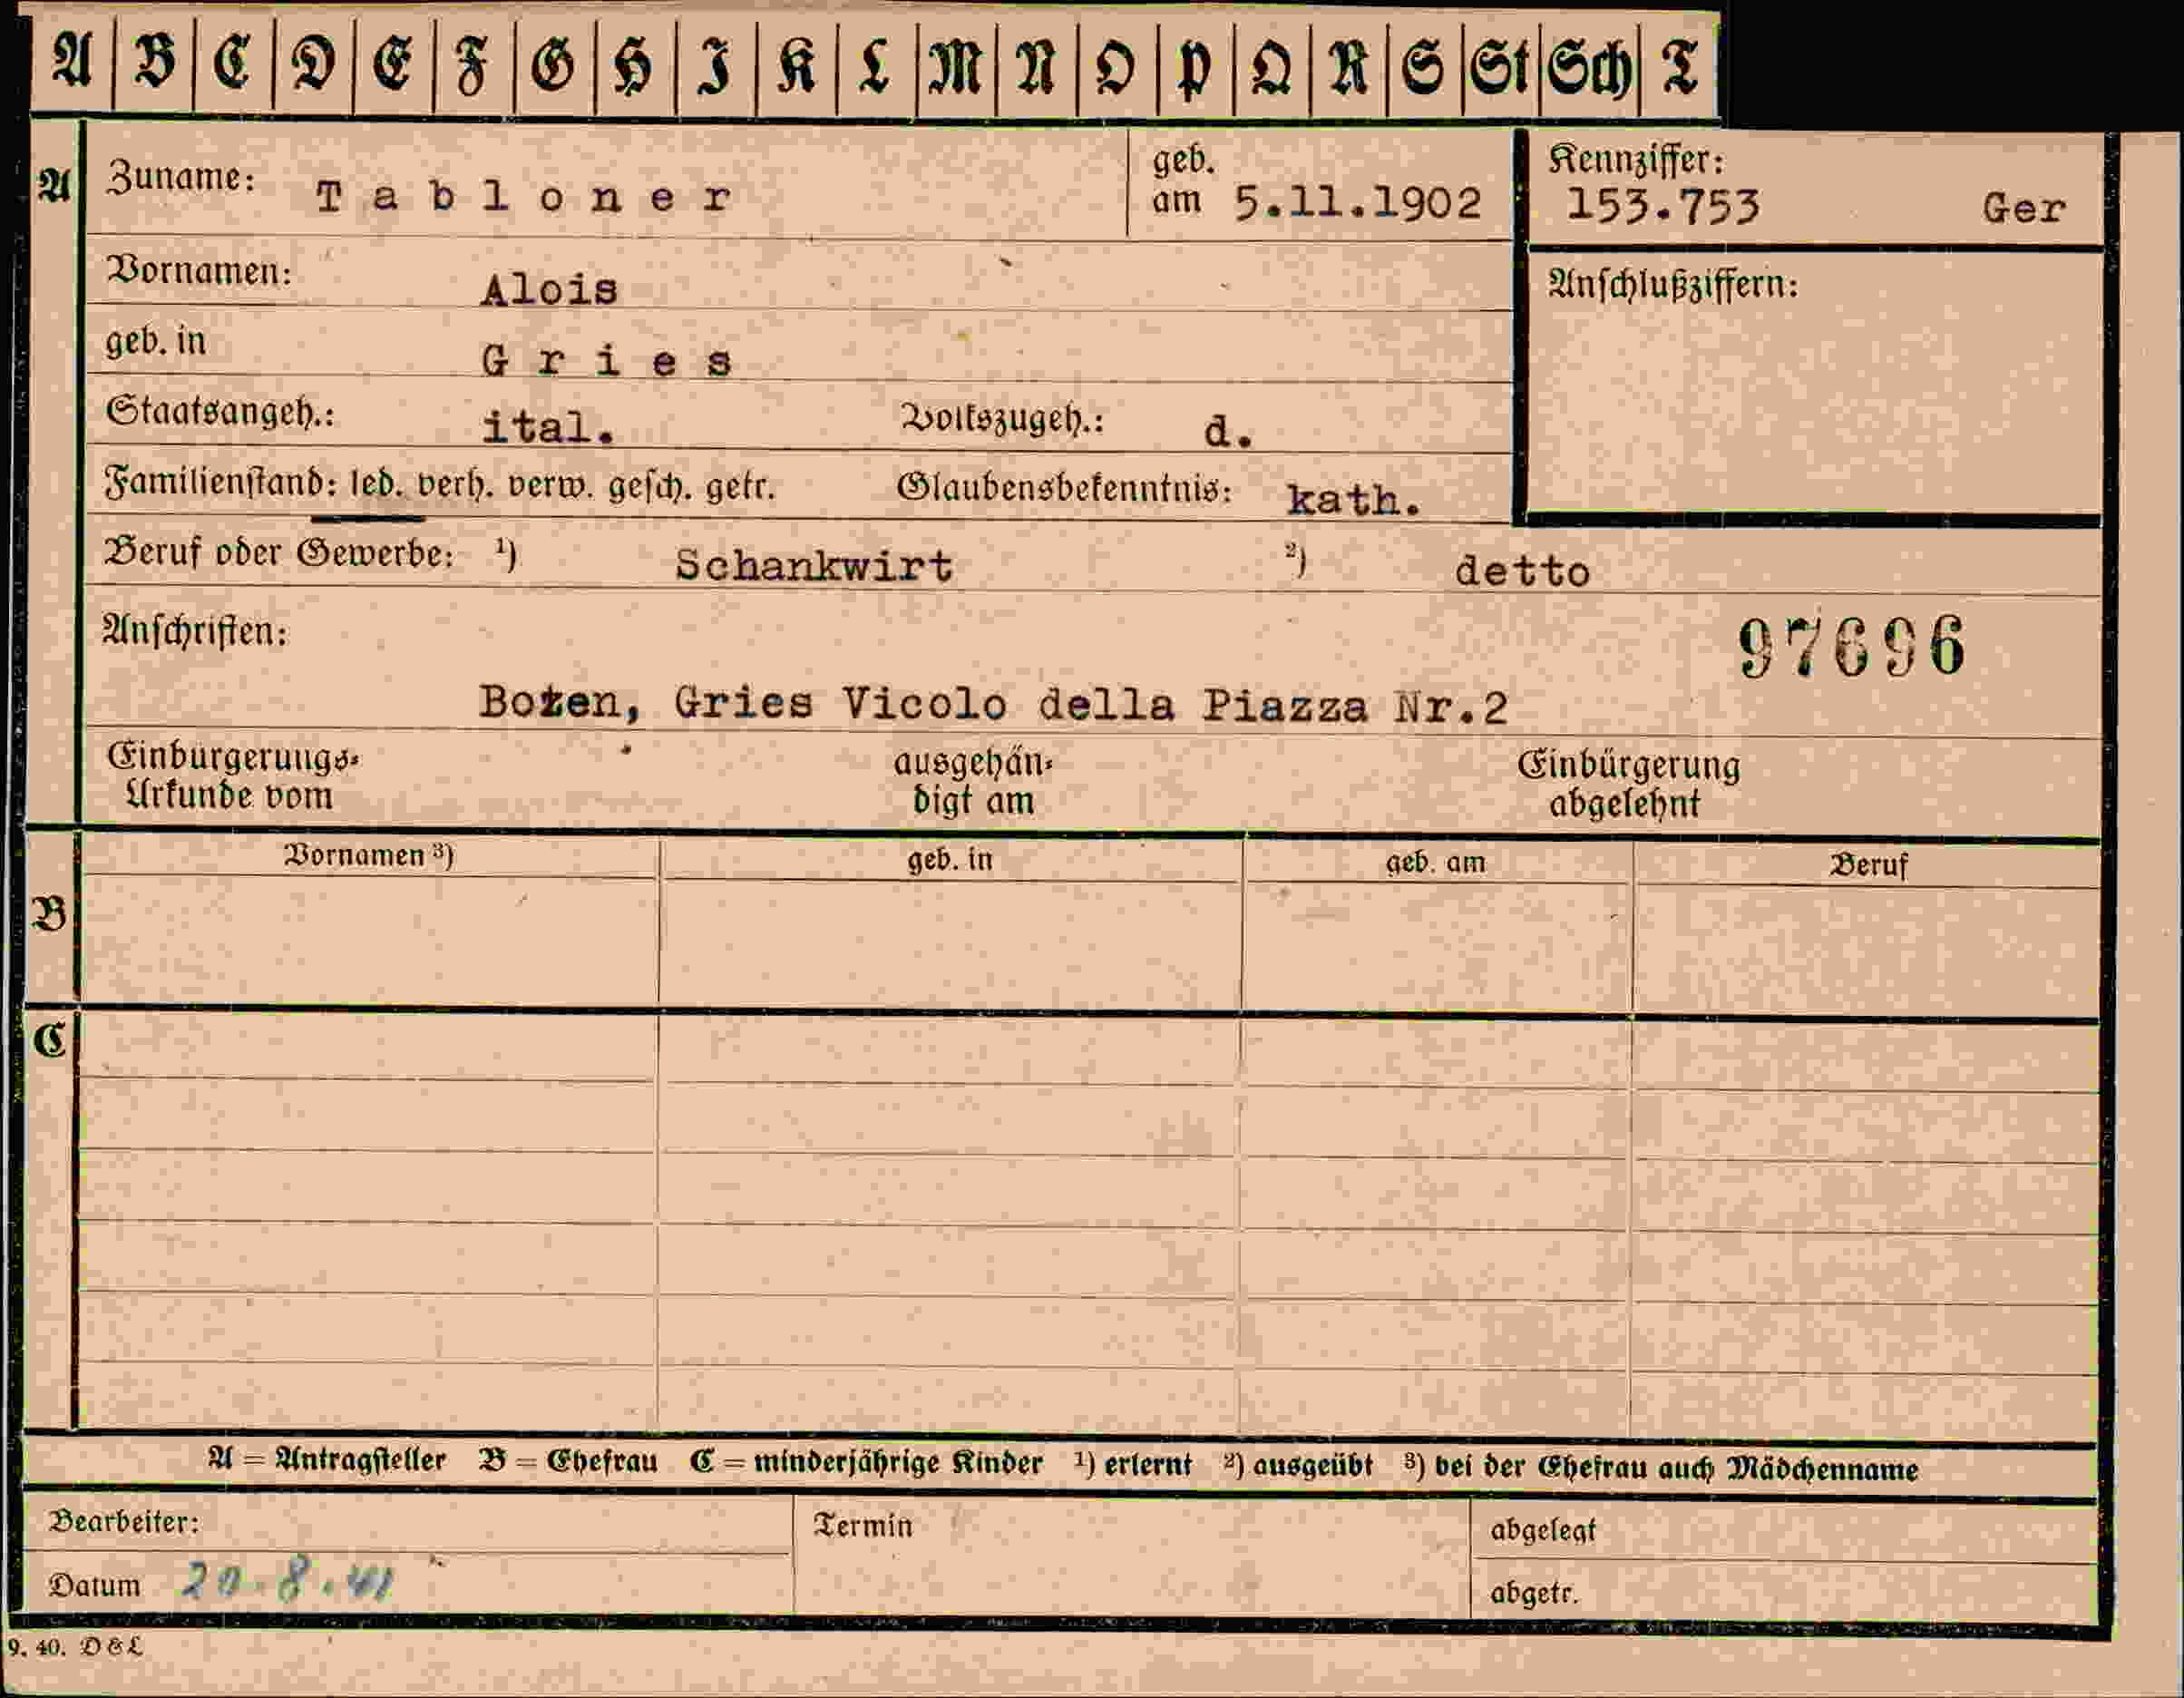 A B C D E F G H I K L M N O P Q R S St Sch T
A Zuname: Tabloner geb. am 5.11.1902 Kennziffer: 153.753 Ger
Vornamen: Alois Anschlußziffern:
geb. in Gries
Staatsangeh.: ital. Volkszugeh.: d.
Familienstand: led. verh. verw. gesch. getr. Glaubensbekenntnis: kath.
Beruf oder Gewerbe: ¹) Schankwirt ²) detto
Anschriften: 97696
Bozen, Gries Vicolo della Piazza Nr.2
Einbürgerungs- ausgehän- Einbürgerung
Urkunde vom digt am abgelehnt
Vornamen ³) geb. in geb. am Beruf
B
C
A = Antragsteller B = Ehefrau C = minderjährige Kinder ¹) erlernt ²) ausgeübt ³) bei der Ehefrau auch Mädchenname
Bearbeiter: Termin abgelegt
Datum 20.8.41 abgetr.
9. 40. D&L